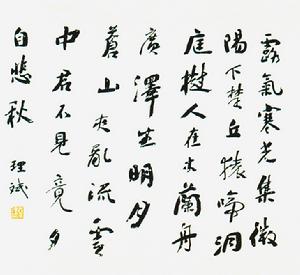 露氣寒光集微
陽下楚丘猿啼洞
庭樹人在木蘭舟
廣澤生明月
蒼山夾亂流雲
中君不見竟夕
自悲秋
理